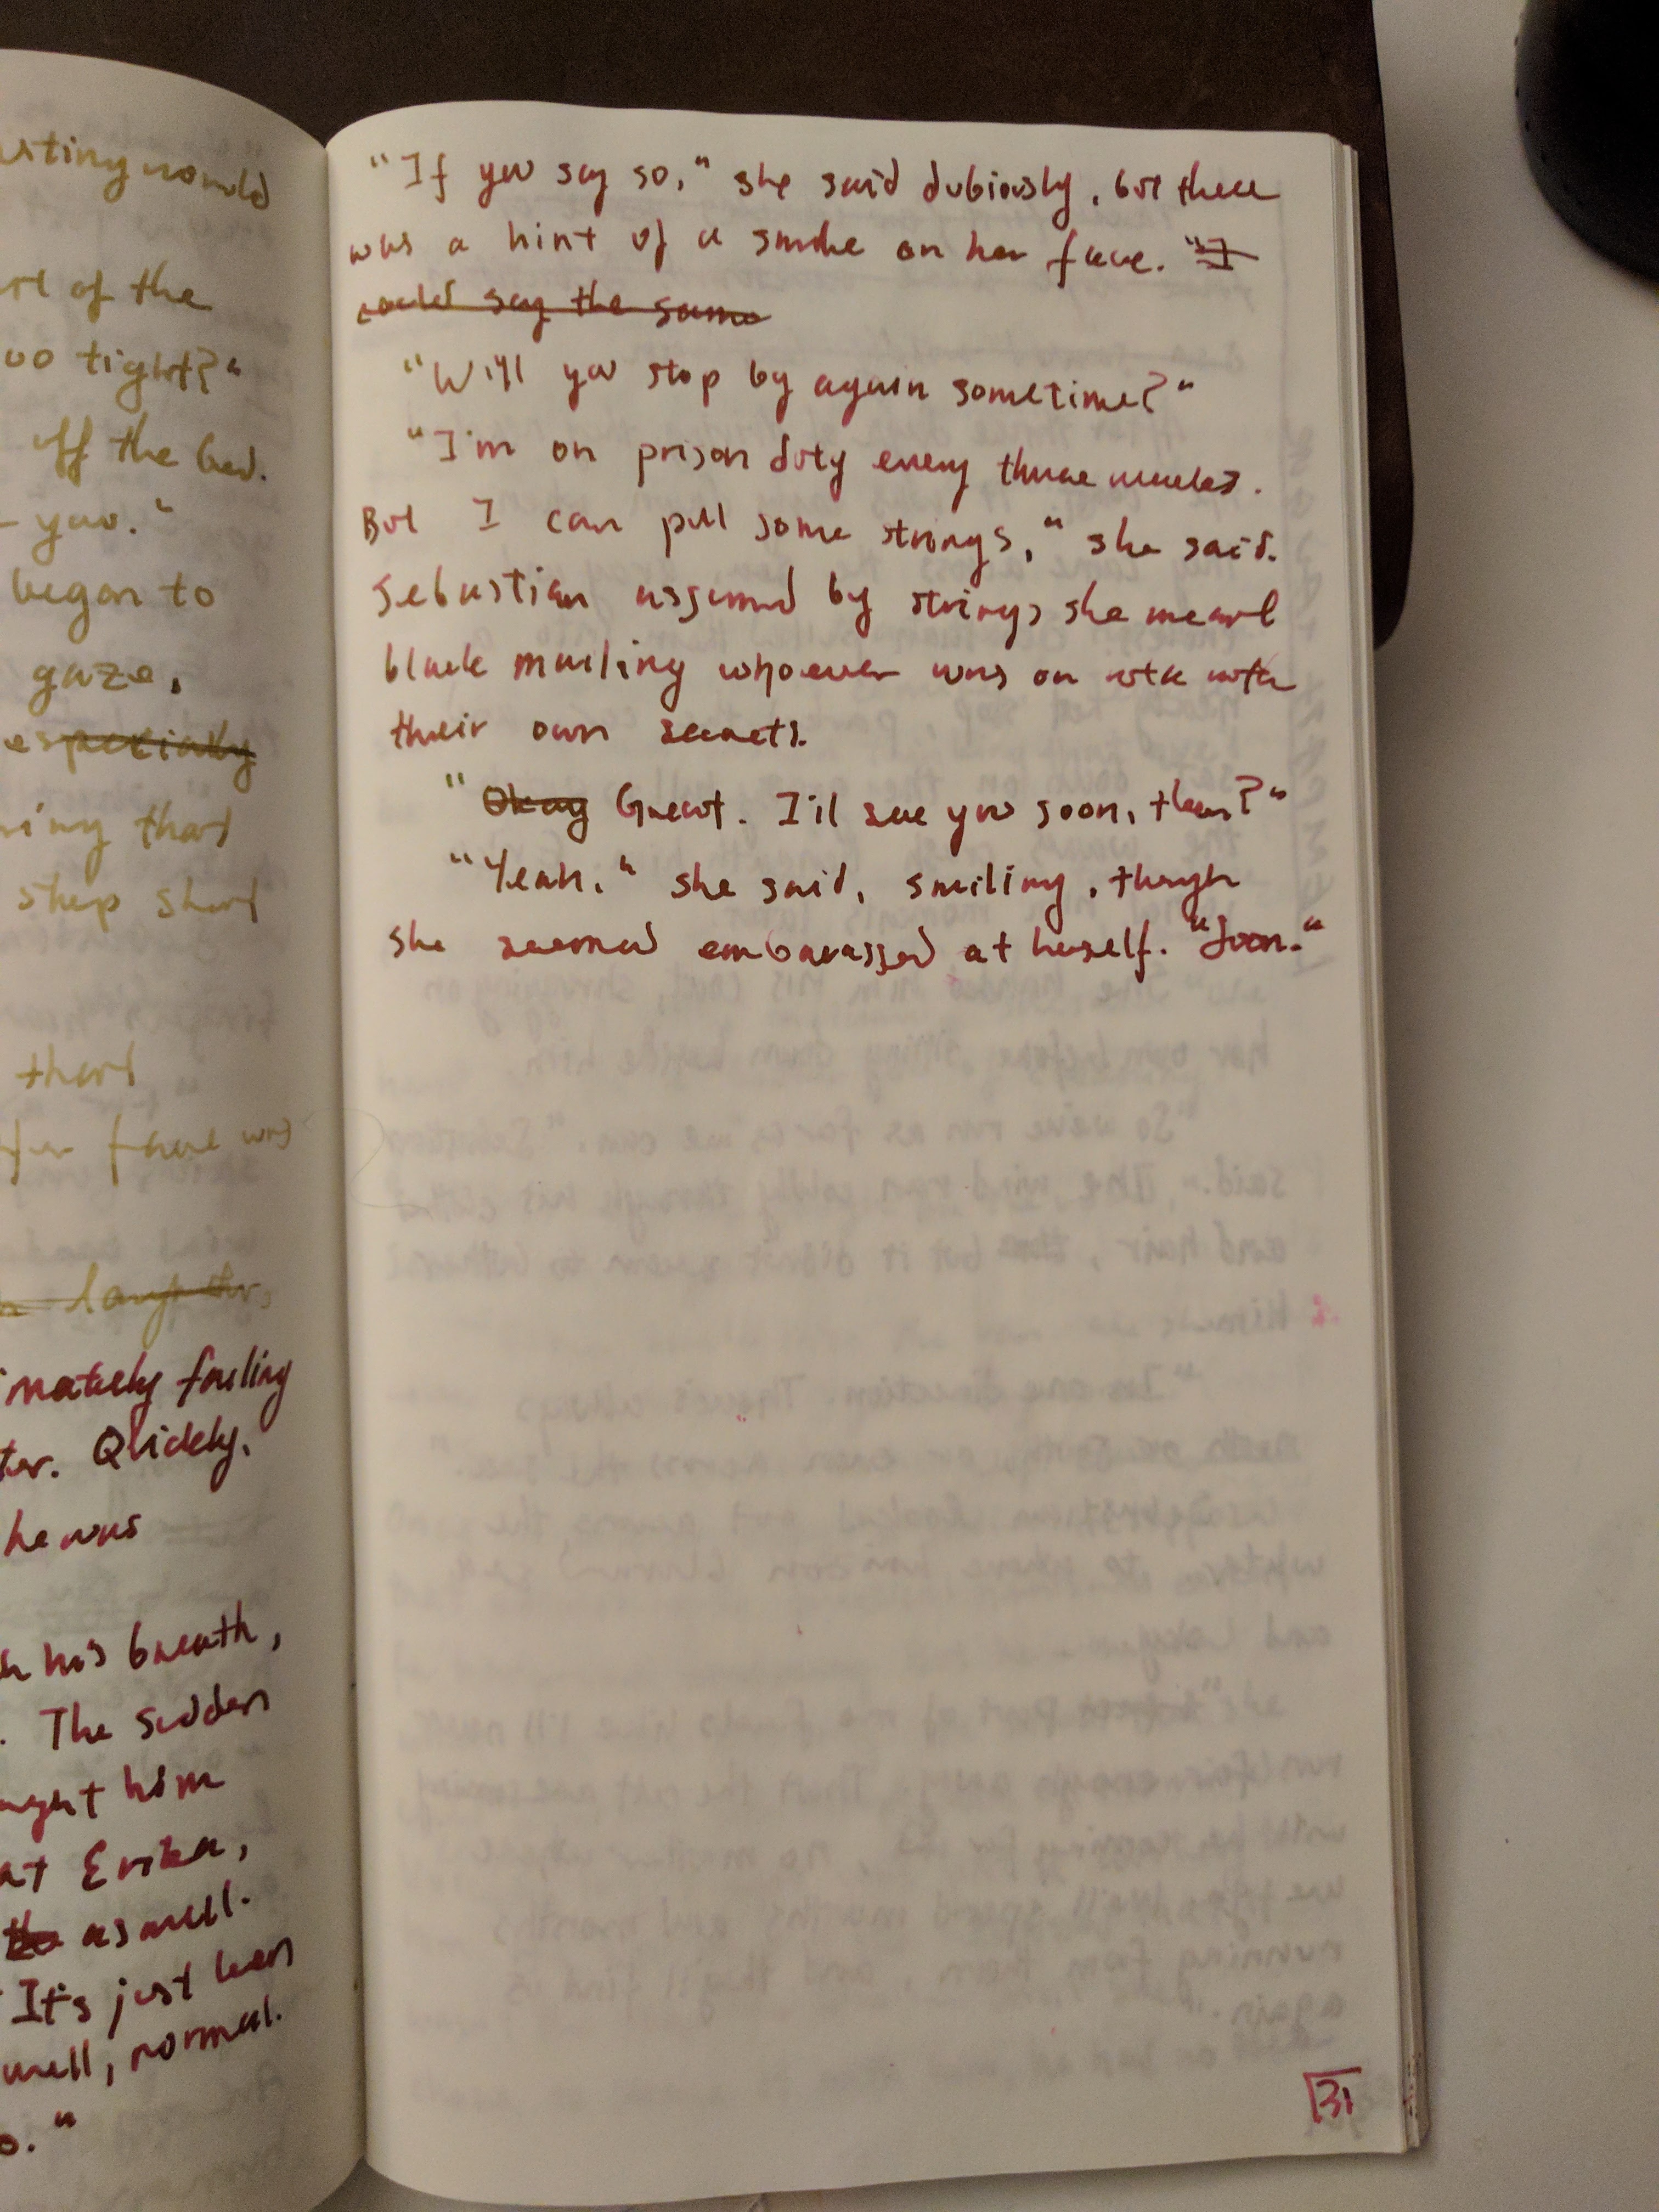 usting would
rt of the
oo tight?"
off the bed.
- you."
began to
gaze,
especially
ring that
step short
that
face was
laughter,
mately failing
ter. Quickly,
he was
his breath,
. The sudden
aught him
at Erika,
the as well.
It's just been
well, normal.
o."
"If you say so," she said dubiously, but there
was a hint of a smile on her face. "I
could say the same
"Will you stop by again sometime?"
"I'm on prison duty every three weeks.
But I can pull some strings," she said.
Sebastian assumed by strings she meant
black mailing whoever was on
their own secrets.
"Okay Great. I'll see you soon, then?"
"Yeah," she said, smiling, though
she seemed embarassed at herself. "Soon."
31